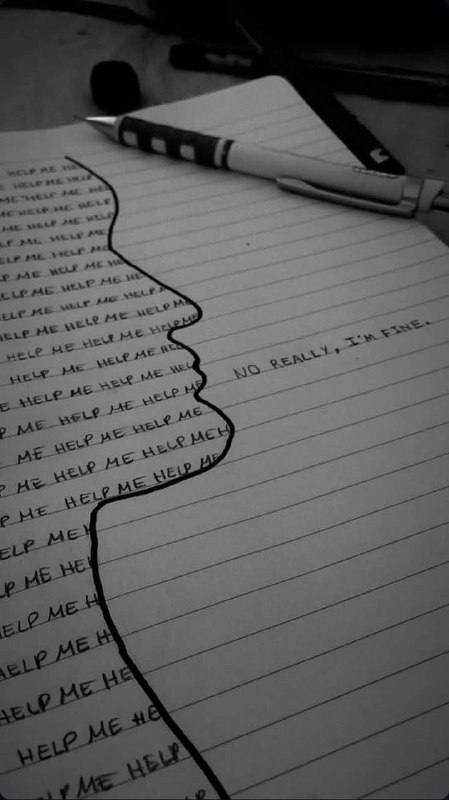 HELP ME HE
E HELP ME HE
ME HELP ME HE
ME HELP ME HE
HELP ME HELP ME
LP ME HELP ME H
ELP ME HELP ME
P ME HELP ME HE
ELP ME HELP ME HELP
LP ME HELP ME HELP ME
ME HELP ME HELP ME HELP
HELP ME HELP ME HE
HELP ME HELP ME HEL
E HELP ME HELP ME HEL
P ME HELP ME HELP ME
ME HELP ME HELP ME
P ME HELP ME HELP ME H
ME HELP ME HELP ME
ELP ME H
LP ME HE
ELP ME H
HELP ME H
HELP ME HE
HELP ME HE
LP ME HELP
NO REALLY, I'M FINE.